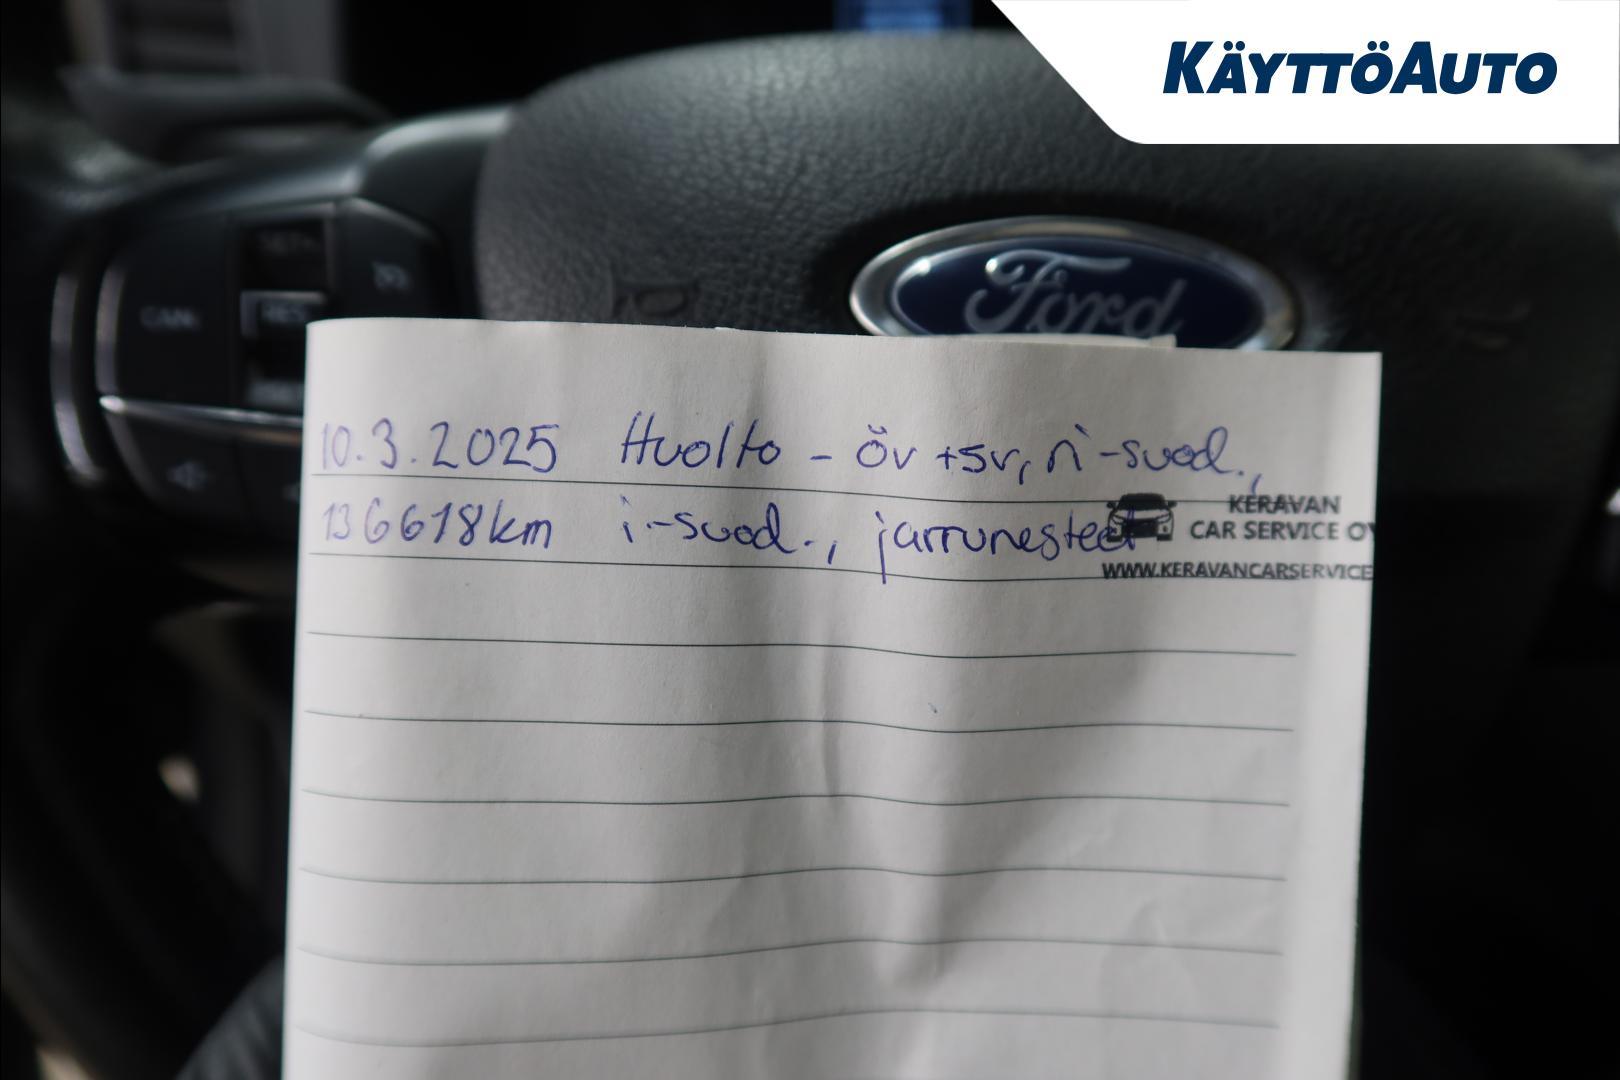 KÄYTTÖAUTO
SET+
CAN
RES
Ford
10.3.2025 Huolto - öv +sv, ri-suod.,
136618km i.-suod., jarrunesteet
KERAVAN
CAR SERVICE OY
WWW.KERAVANCARSERVICE